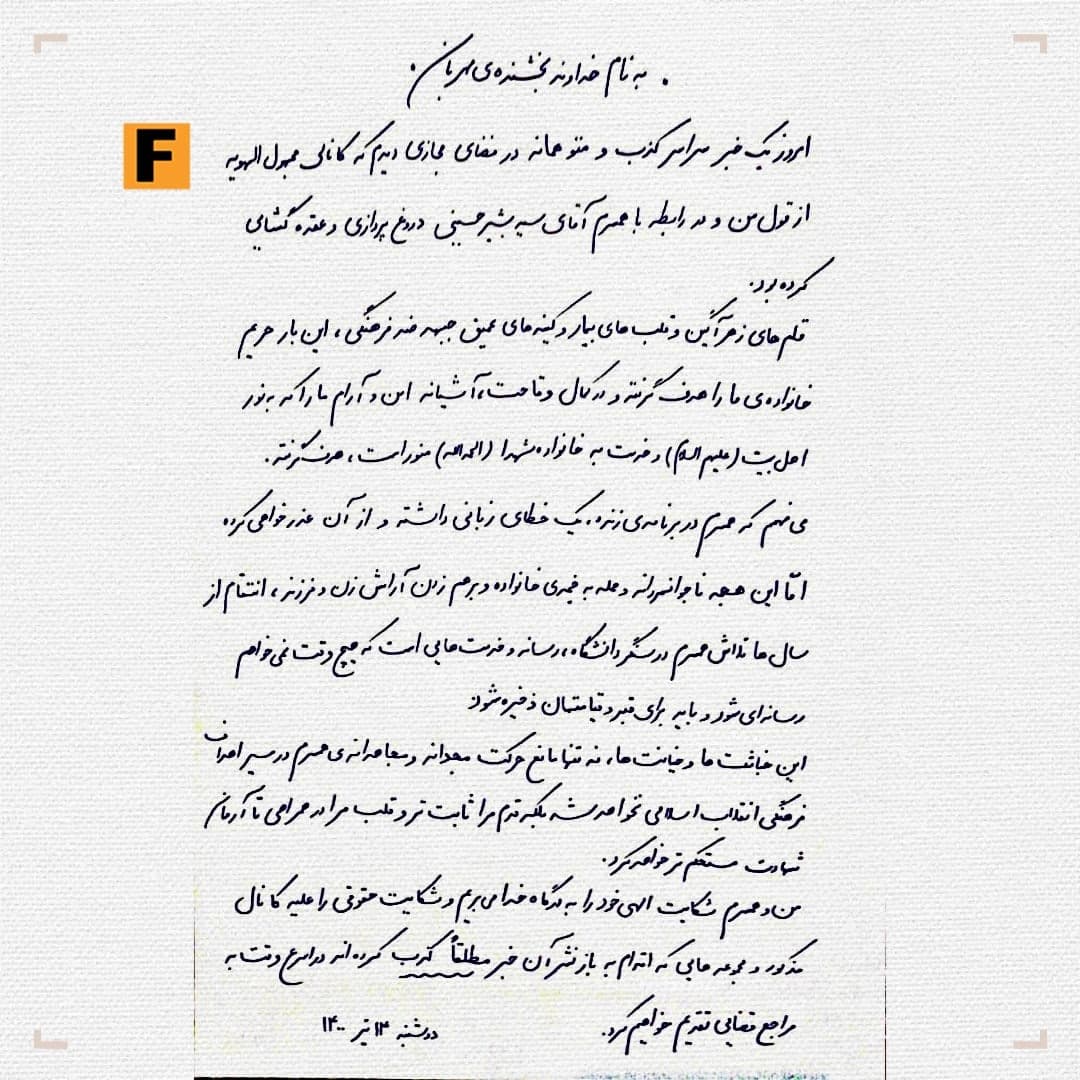 به نام خداوند بخشنده‌ی مهربان.
F
امروز یک خبر سراسر کذب و متوهمانه در فضای مجازی دیدم که کانالی مجهول الهویه
از قول من و در رابطه با همسرم آقای سید بشیر حسینی دروغ پردازی و عقده گشایی
کرده بود.
قلم‌های زهرآگین و قلب‌های بیمار و کینه‌های عمیق جبهه ضد فرهنگی، این بار حریم
خانواده‌ی ما را هدف گرفته و در کمال وقاحت، آشیانه امن و آرام ما را که به نور
اهل بیت (علیهم السلام) و خدمت به خانواده شهدا (الحمدالله) منور است، هدف گرفته.
می‌فهمم که همسرم در برنامه‌ی زنده، یک خطای زبانی داشته و از آن عذرخواهی کرده
امّا این هجمه ناجوانمردانه و حمله به خیمه‌ی خانواده و برهم زدن آرامش زن و فرزند، انتقام از
سال‌ها تلاش همسرم در سنگر دانشگاه، رسانه و خدمت‌هایی است که هیچ وقت نمی‌خواهم
رسانه‌ای شود و باید برای قبر و قیامتمان ذخیره شود.
این خباثت‌ها و خیانت‌ها، نه تنها مانع حرکت مجدانه و مجاهدانه‌ی همسرم در مسیر اهداف
فرهنگی انقلاب اسلامی نخواهد شد بلکه قدم مرا ثابت تر و قلب مرا در همراهی تا آرمان
شهادت مستحکم تر خواهد کرد.
من و همسرم شکایت الهی خود را به درگاه خدا می‌بریم و شکایت حقوقی را علیه کانال
مذکور و مجموعه‌هایی که اقدام به بازنشر آن خبر مطلقاً کذب کرده‌اند در اسرع وقت به
مراجع قضایی تقدیم خواهیم کرد.
دوشنبه ۱۴ تیر ۱۴۰۰